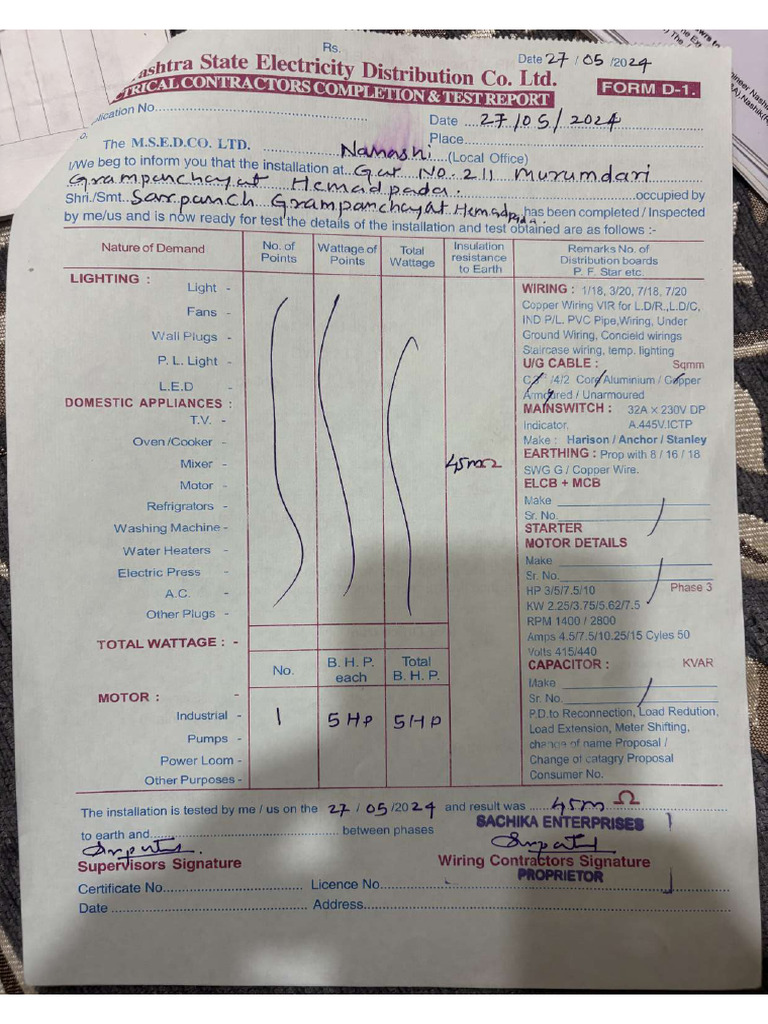 Rs.
Date 27/05/2024
ashtra State Electricity Distribution Co. Ltd.
TRICAL CONTRACTORS COMPLETION & TEST REPORT FORM D-1.
plication No
Date 27/05/2024
o. Place
The M.S.E.D.CO. LTD. Nanashi (Local Office)
I/We beg to inform you that the installation at Gat No. 211 Murumdari
Grampanchayat Hemadpada.
Shri./Smt. Sarpanch Grampanchayat Hemadpada. occupied by
has been completed / Inspected
by me/us and is now ready for test the details of the installation and test obtained are as follows :-
Nature of Demand No. of Points Wattage of Points Total Wattage Insulation resistance to Earth Remarks No. of Distribution boards P. F. Star etc.
LIGHTING :
Light -
Fans -
Wall Plugs -
P. L. Light -
L.E.D -
DOMESTIC APPLIANCES :
T.V. -
Oven /Cooker -
Mixer - 45mΩ
Motor -
Refrigrators -
Washing Machine -
Water Heaters -
Electric Press -
A.C. -
Other Plugs -
TOTAL WATTAGE : -
No. B. H. P. each Total B. H. P.
MOTOR : -
Industrial - 1 5HP 5HP
Pumps -
Power Loom -
Other Purposes -
WIRING : 1/18, 3/20, 7/18, 7/20
Copper Wiring VIR for L.D/R.,L.D/C,
IND P/L. PVC Pipe,Wiring, Under
Ground Wiring, Concield wirings
Staircase wiring, temp. lighting
U/G CABLE : Sqmm
/4/2 Core/Aluminium / Copper
Armoured / Unarmoured
MAINSWITCH : 32A × 230V DP
Indicator. A.445V.ICTP
Make : Harison / Anchor / Stanley
EARTHING : Prop with 8 / 16 / 18
SWG G / Copper Wire.
ELCB + MCB
Make
Sr. No.
STARTER
MOTOR DETAILS
Make
Sr. No.
HP 3/5/7.5/10 Phase 3
KW 2.25/3.75/5.62/7.5
RPM 1400 / 2800
Amps 4.5/7.5/10.25/15 Cyles 50
Volts 415/440
CAPACITOR : KVAR
Make
Sr. No.
P.D.to Reconnection, Load Redution,
Load Extension, Meter Shifting,
change of name Proposal /
Change of catagry Proposal
Consumer No.
The installation is tested by me / us on the 27 / 05 /2024 and result was 45m Ω
to earth and between phases
SACHIKA ENTERPRISES
Supervisors Signature Wiring Contractors Signature
PROPRIETOR
Certificate No. Licence No.
Date Address